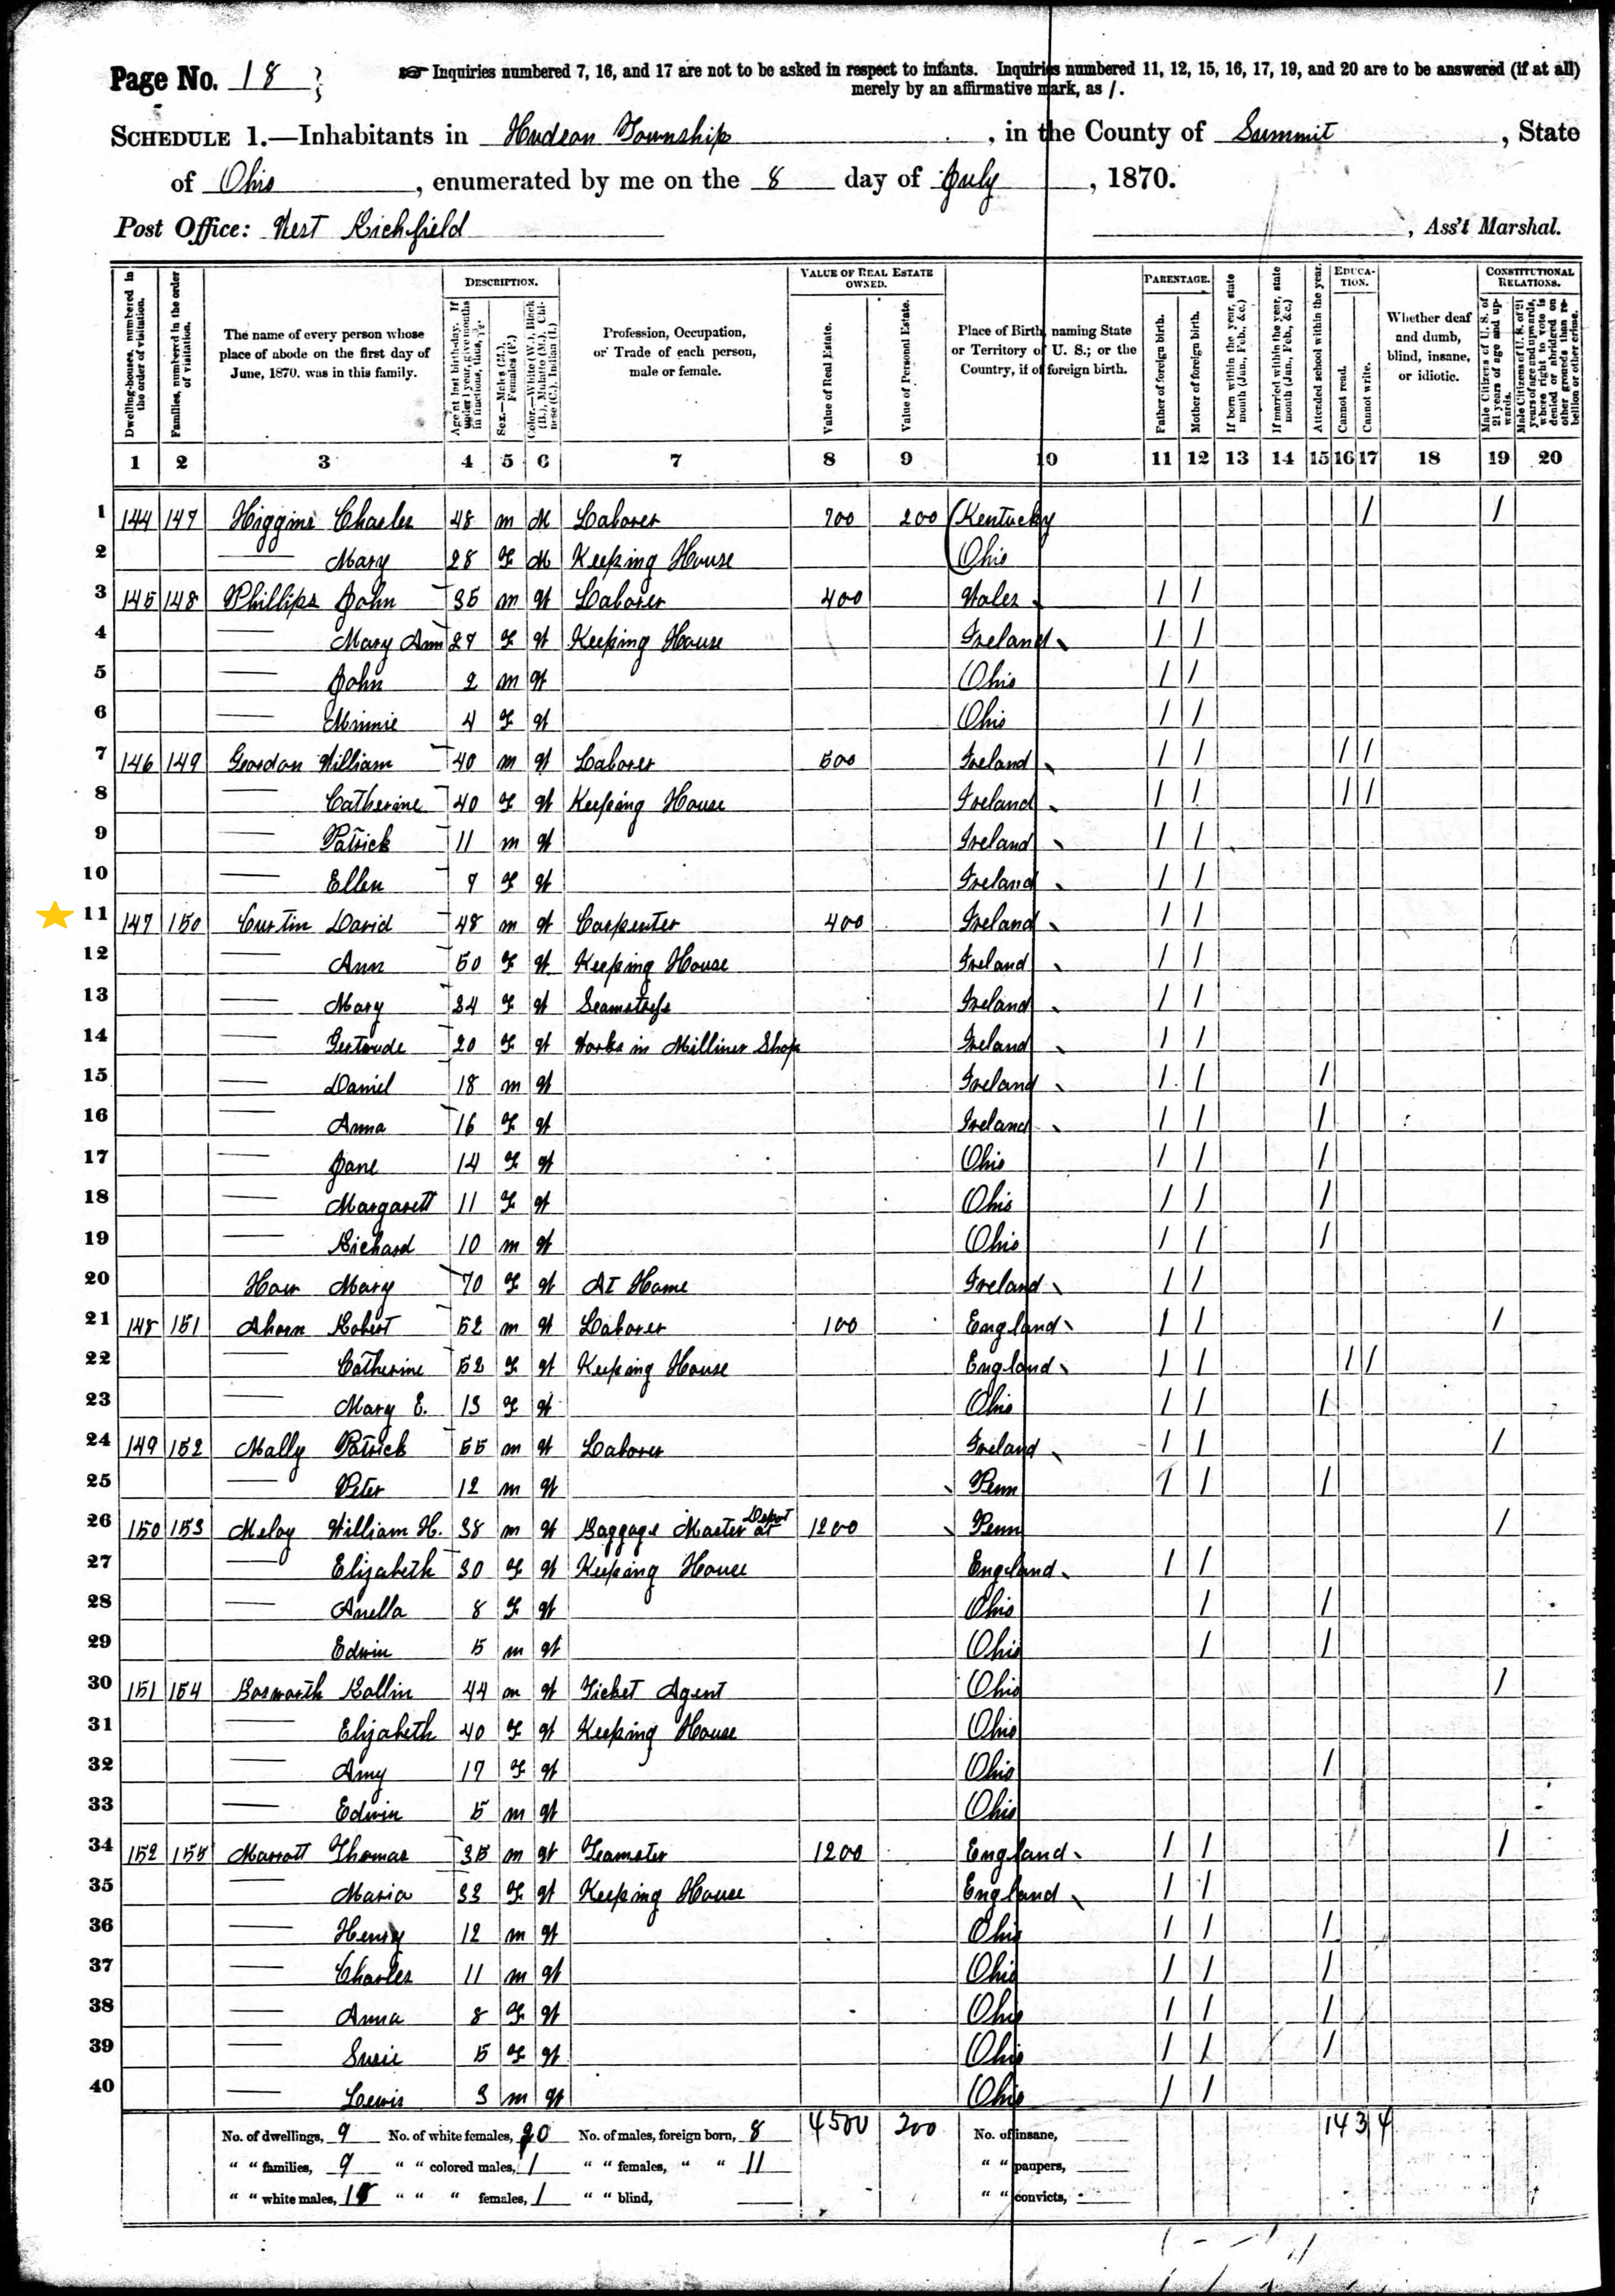 Page No. 18
Inquiries numbered 7, 16, and 17 are not to be asked in respect to infants. Inquiries numbered 11, 12, 15, 16, 17, 19, and 20 are to be answered (if at all)
merely by an affirmative mark, as /.
SCHEDULE 1.—Inhabitants in Hudson Township, in the County of Summit, State
of Ohio, enumerated by me on the 8 day of July, 1870.
Post Office: West Richfield , Ass't Marshal.
Dwelling-houses, numbered in the order of visitation.
Families, numbered in the order of visitation.
The name of every person whose place of abode on the first day of June, 1870, was in this family.
DESCRIPTION.
Age at last birth-day. If under 1 year, give months in fractions, thus, 3/12.
Sex.—Males (M.), Females (F.)
Color.—White (W.), Black (B.), Mulatto (M.), Chinese (C.), Indian (I.)
Profession, Occupation, or Trade of each person, male or female.
VALUE OF REAL ESTATE OWNED.
Value of Real Estate.
Value of Personal Estate.
Place of Birth, naming State or Territory of U. S.; or the Country, if of foreign birth.
PARENTAGE.
Father of foreign birth.
Mother of foreign birth.
If born within the year, state month (Jan., Feb., &c.)
If married within the year, state month (Jan., Feb., &c.)
Attended school within the year.
EDUCATION.
Cannot read.
Cannot write.
Whether deaf and dumb, blind, insane, or idiotic.
CONSTITUTIONAL RELATIONS.
Male Citizens of U. S. of 21 years of age and upwards.
Male Citizens of U. S. of 21 years of age and upwards, where right to vote is denied or abridged on other grounds than rebellion or other crime.
1 2 3 4 5 6 7 8 9 10 11 12 13 14 15 16 17 18 19 20
1 144 147 Higgins Charles 48 M M Laborer 700 200 Kentucky / /
2 — Mary 28 F M Keeping House Ohio
3 145 148 Phillips John 35 M W Laborer 400 Wales / /
4 — Mary Ann 27 F W Keeping House Ireland / /
5 — John 2 M W Ohio / /
6 — Minnie 4 F W Ohio / /
7 146 149 Gordon William 40 M W Laborer 500 Ireland / / / /
8 — Catherine 40 F W Keeping House Ireland / / / /
9 — Patrick 11 M W Ireland / /
10 — Ellen 7 F W Ireland / /
11 147 150 Curtin David 48 M W Carpenter 400 Ireland / /
12 — Ann 50 F W Keeping House Ireland / /
13 — Mary 24 F W Seamstress Ireland / /
14 — Gertrude 20 F W Works in Milliner Shop Ireland / /
15 — Daniel 18 M W Ireland / / /
16 — Anna 16 F W Ireland / / /
17 — Jane 14 F W Ohio / / /
18 — Margarett 11 F W Ohio / / /
19 — Richard 10 M W Ohio / / /
20 Mary 70 F W At Home Ireland / /
21 148 151 Ahorn Robert 52 M W Laborer 100 England / / /
22 — Catherine 52 F W Keeping House England / / / /
23 — Mary E. 13 F W Ohio / / /
24 149 152 Mally Patrick 55 M W Laborer Ireland / / /
25 — Peter 12 M W Penn / / /
26 150 153 Meloy William H. 38 M W Baggage Master at Depot 1200 Penn /
27 — Elizabeth 30 F W Keeping House England / /
28 — Anella 8 F W Ohio / /
29 — Edwin 5 M W Ohio / /
30 151 154 Bosworth Rollin 44 M W Ticket Agent Ohio /
31 — Elizabeth 40 F W Keeping House Ohio
32 — Amy 17 F W Ohio /
33 — Edwin 5 M W Ohio
34 152 155 Marrott Thomas 35 M W Teamster 1200 England / / /
35 — Maria 33 F W Keeping House England / /
36 — Henry 12 M W Ohio / / /
37 — Charles 11 M W Ohio / / /
38 — Anna 8 F W Ohio / / /
39 — Susie 5 F W Ohio / / /
40 — Lewis 3 M W Ohio / /
No. of dwellings, 9 No. of white females, 20 No. of males, foreign born, 8 4500 200 No. of insane, 14 3 4
" " families, 9 " " colored males, 1 " " females, " " 11 " " paupers,
" " white males, 18 " " " females, 1 " " blind, " " convicts,